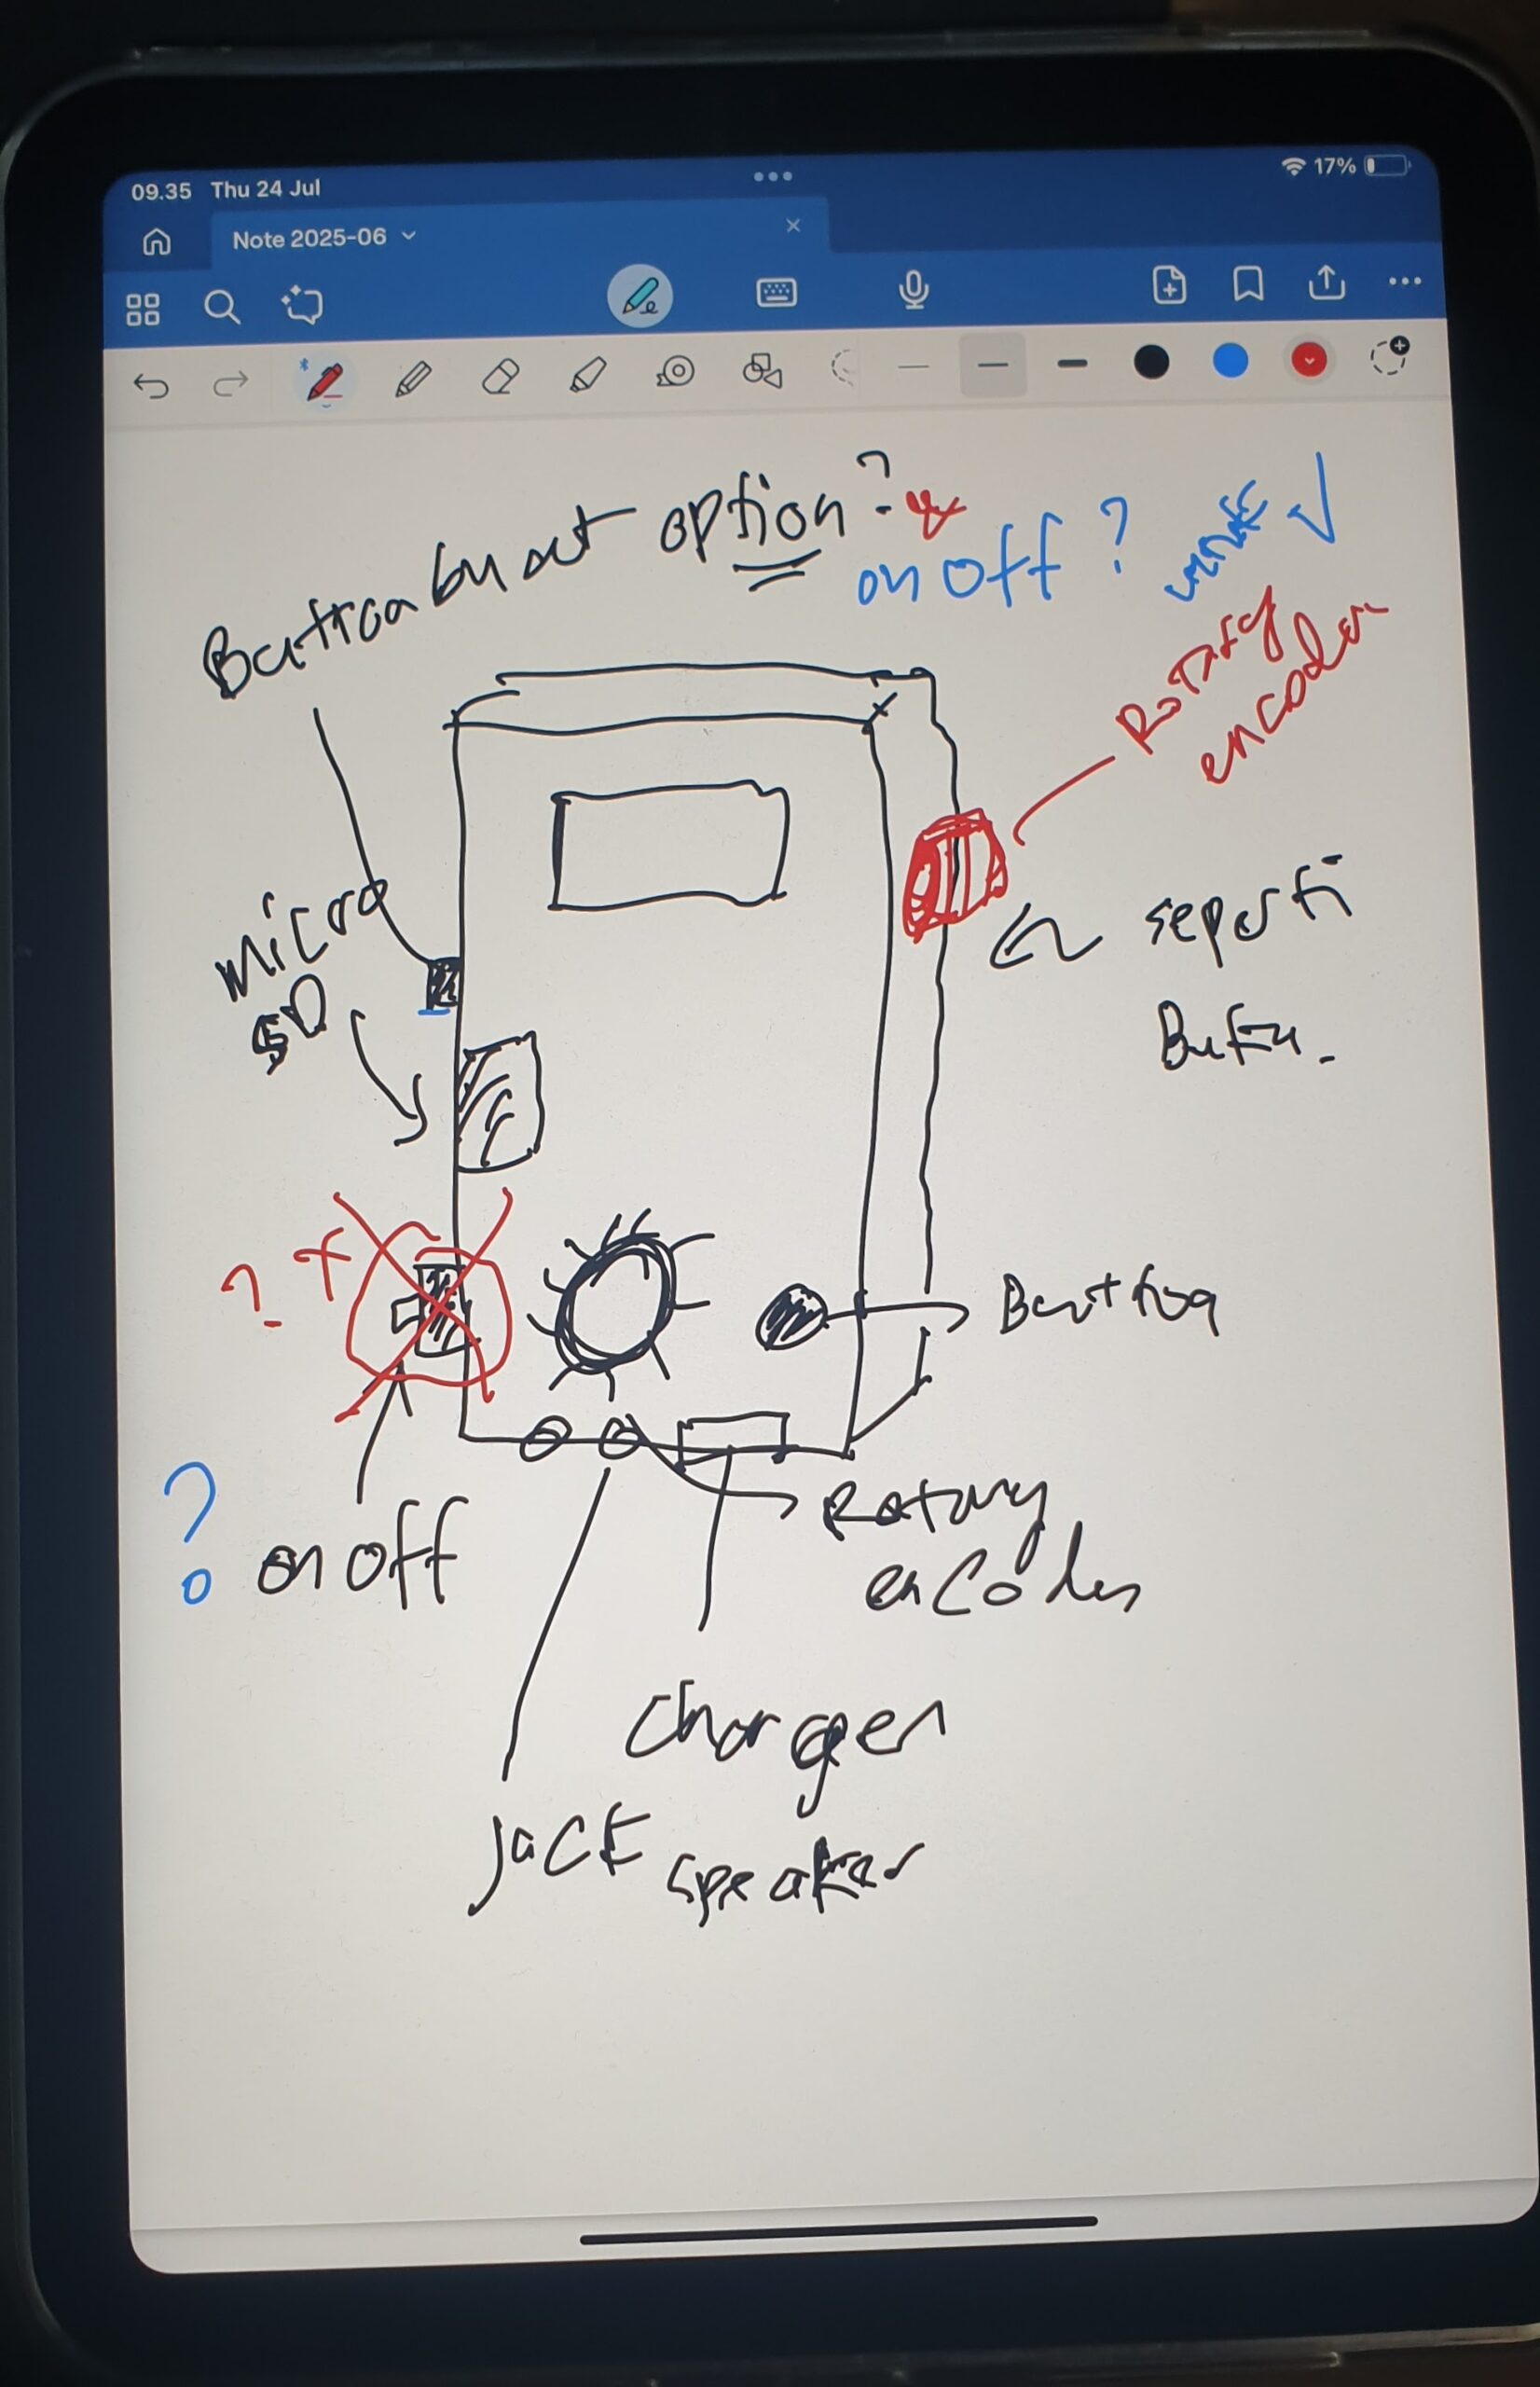 09.35 Thu 24 Jul
17%
Note 2025-06
option?
on off ?
Rotary
encoder
micro
SD
seperti
? on off
Rotary
encoder
charger
jack speaker